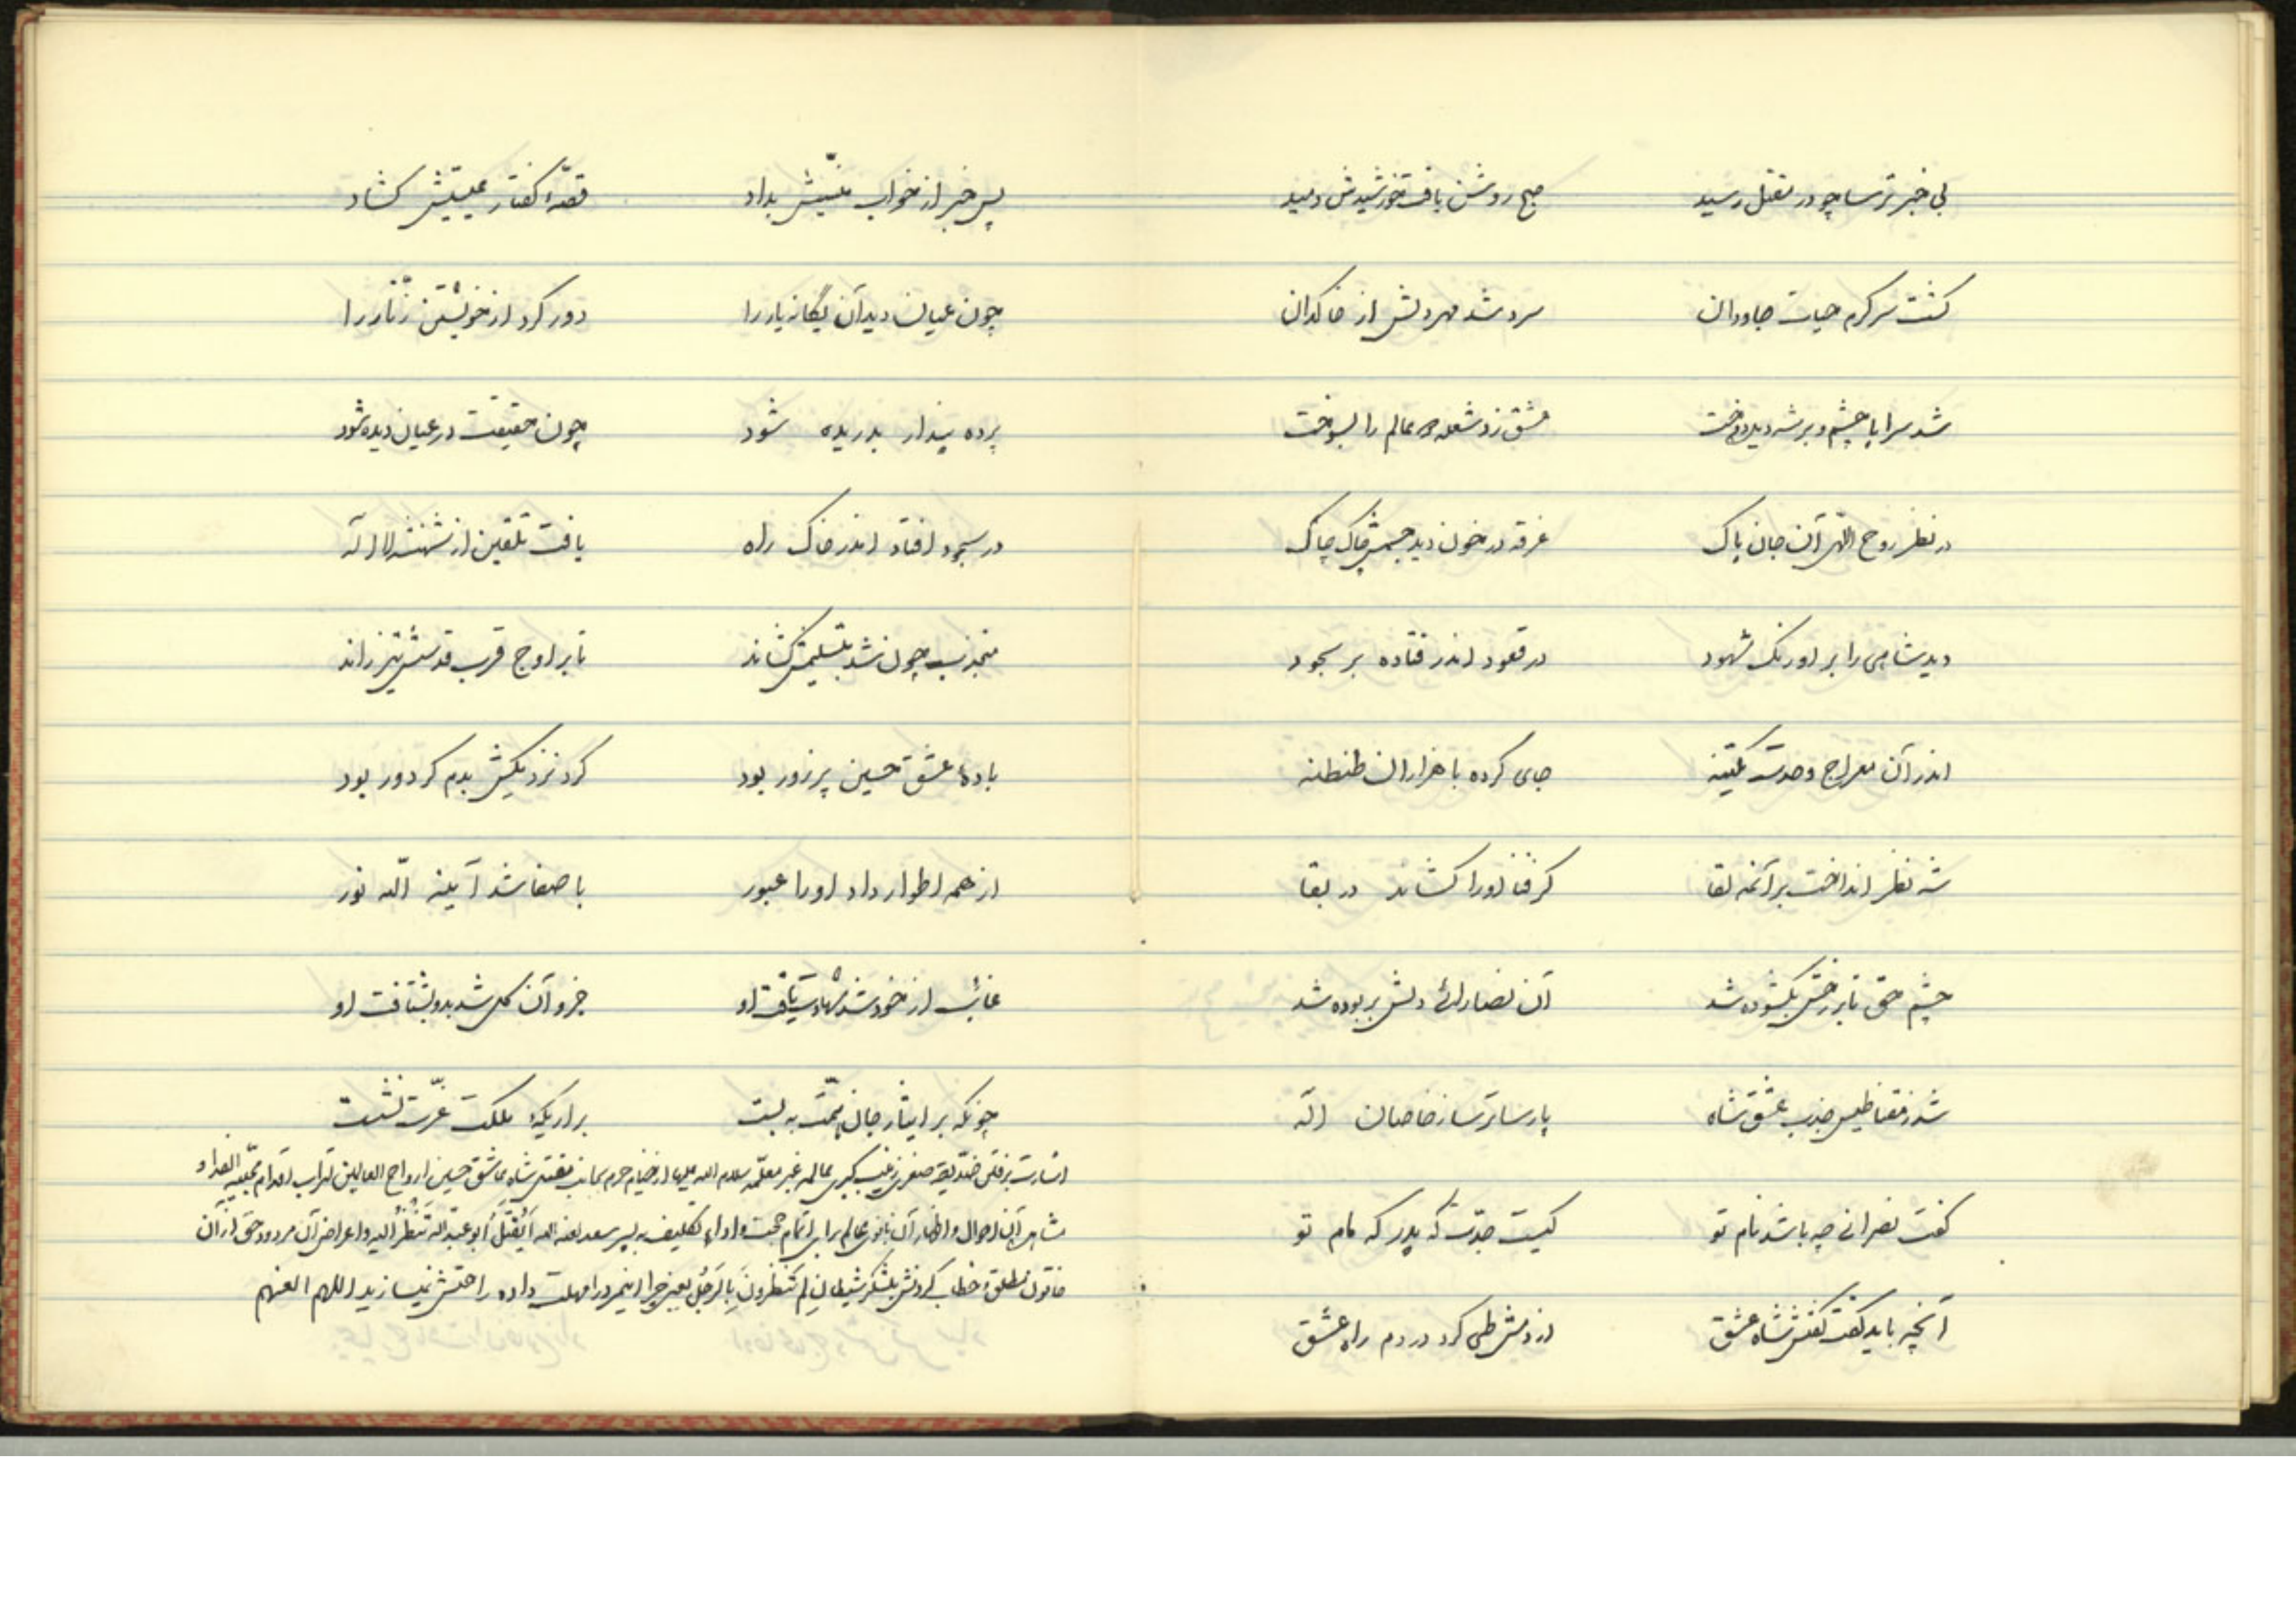 بی خبر ترسا چو در مقتل رسید صبح روشن یافت خورشیدش دمید
گشت سرگرم حیات جاودان سرد شد مهر دلش از خاکدان
شد سراپا چشم و بر شه دیده دوخت عشق زد شعله همه عالم را بسوخت
در نظر روح اللهی آن جان پاک غرقه در خون دید جسمش چاک چاک
دید شاهی را بر اورنگ شهود در قعود اندر فتاده بر سجود
اندر آن معراج وحدت یکتنه جای کرده با هزاران طنطنه
شه نظر انداخت بر آئنه لقا کز فنا او را کشاند در بقا
چشم حق تا بر رخش بگشوده شد آن نصارائی دلش بربوده شد
شد ز مقناطیس جذب عشق شاه پارسا ترسا ز خاصان اله
گفت نصرانی چه باشد نام تو کیست جدّت که پدر که مام تو
آنچه باید گفت گفتش شاه عشق از دمش طی کرد در دم راه عشق
پس خبر از خواب غیبیش بداد قصّهٔ گفتار عیسیش گشاد
چون عیان دید آن یگانه یار را دور کرد از خویشتن زنّار را
پرده پندار بدریده شود چون حقیقت در عیان دیده شود
در سجود افتاد اندر خاک راه یافت تلقین از شهنشه لا اله
منجذب چون شد بتسلیمش کشاند تا بر اوج قرب قدسش تیز راند
بادهٔ عشق حسین پر زور بود کرد نزدیکش بدم کر دور بود
از همه اطوار داد او را عبور با صفا شد آینه الله نور
غائب از خود شد شهادت یافت او جزو آن کل شد بدو بشتافت او
چونکه بر ایثار جان همّت به بست بر اریکهٔ ملکت عزّت نشست
اشارت برفتن صدّیقه صغری زینب کبری عالمه غیر معلّمه سلام الله علیها از خیام حرم بجانب مقتل شاه عاشق حسین ارواح العالمین لتراب اقدام محبّیه الفدا و
مشاهده این احوال و اظهار آن بانوی عالم برای اتمام حجت و اداء تکلیف به پسر سعد لعنه الله اَیُقتَلُ اَبو عبدالله تَنظُرُ الیه و اعراض آن مردود حق از آن
خاتون مطلق و خطاب کردنش بلشکر شیطان لِمَ تَنظرونَ بِالرَّجُل یعنی چرا اینمرد را مهلت داده راحتش نمیسازید اللهم العنهم